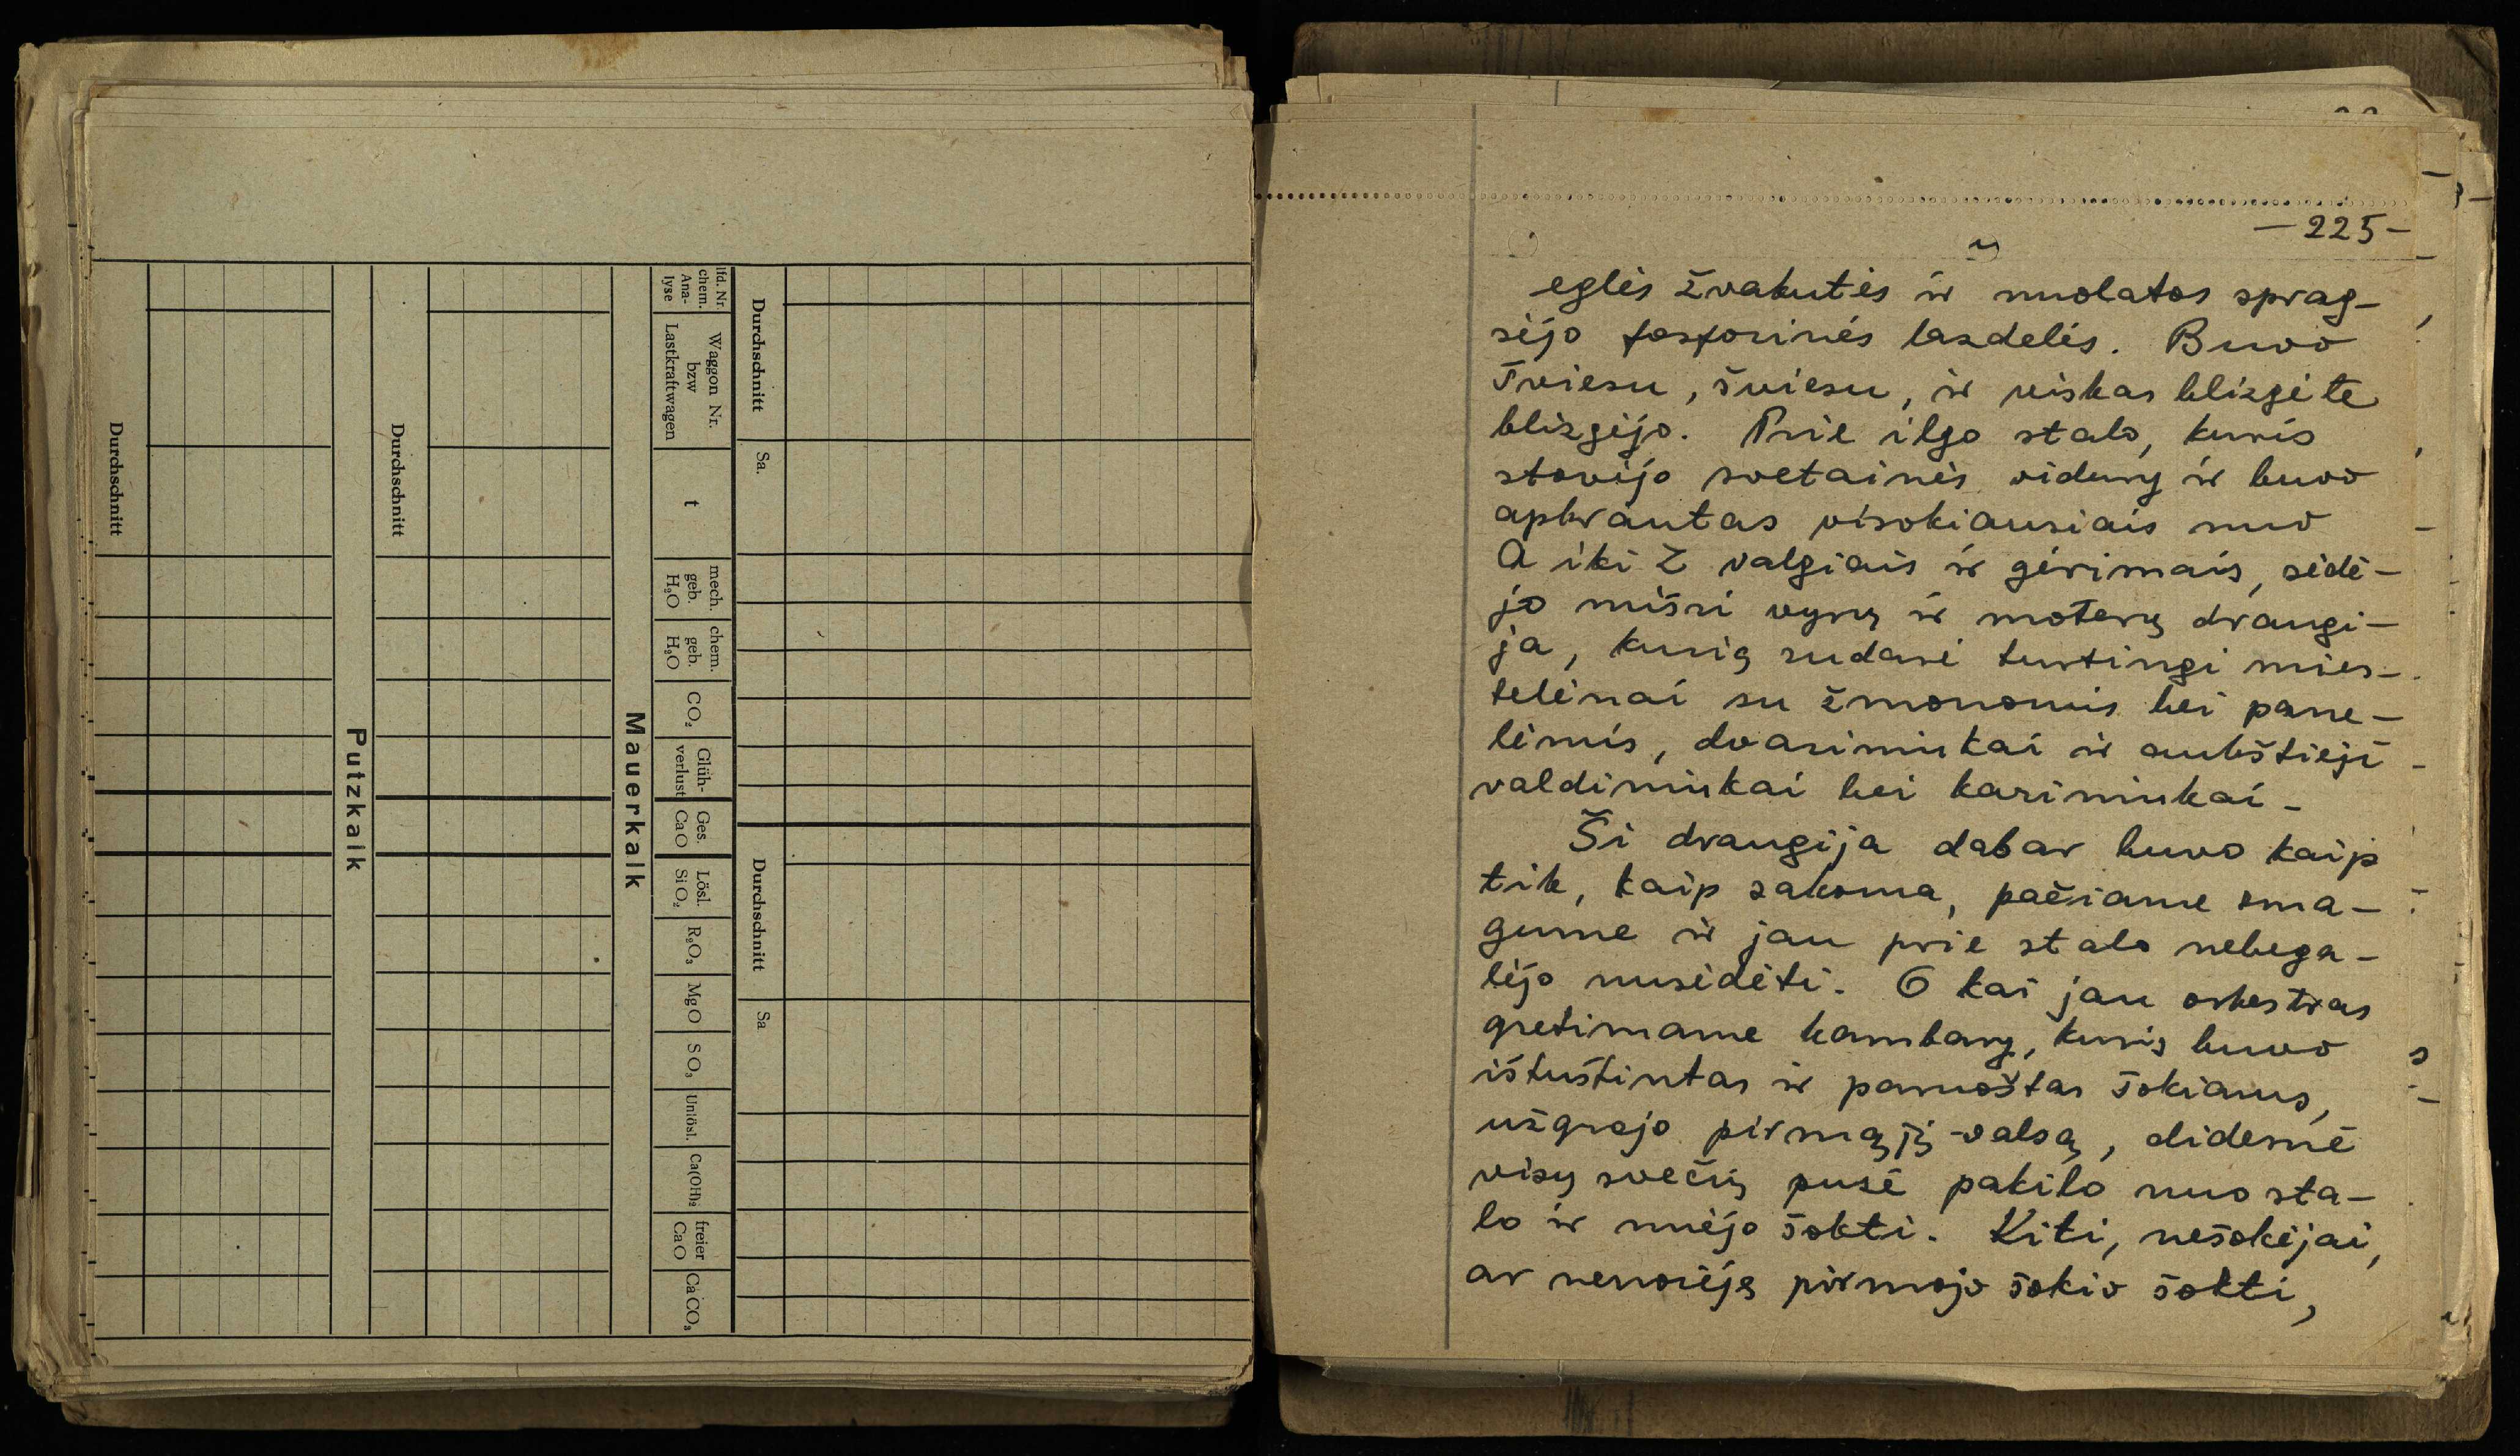 Durchschnitt
Sa.
Durchschnitt
Sa
lfd. Nr.
chem.
Ana-
lyse
Waggon Nr.
bzw
Lastkraftwagen
t
mech.
geb.
H₂O
chem.
geb.
H₂O
CO₂
Glüh-
verlust
Ges.
CaO
Lösl.
SiO₂
R₂O₃
MgO
SO₃
Unlösl.
Ca(OH)₂
freier
CaO
CaCO₃
Mauerkalk
Durchschnitt
Putzkalk
Durchschnitt
—225—
eglės žvakutės ir nuolatos sprag-
sėjo fosforinės lazdelės. Buvo
šviesu, šviesu, ir viskas blizgėte
blizgėjo. Prie ilgo stalo, kuris
stovėjo svetainės vidury ir buvo
apkrautas visokiausiais nuo
A iki Ž valgiais ir gėrimais, sėdė-
jo mišri vyrų ir moterų draugi-
ja, kurią sudarė turtingi mies-
telėnai su žmonomis bei pane-
lėmis, dvarininkai ir aukštieji
valdininkai bei karininkai.
Ši draugija dabar buvo kaip
tik, kaip sakoma, pačiame sma-
gume ir jau prie stalo nebega-
lėjo nusėdėti. O kai jau orkestras
gretimame kambary, kuris buvo
ištuštintas ir paruoštas šokiams,
užgrojo pirmąjį valsą, didesnė
visų svečių pusė pakilo nuo sta-
lo ir nuėjo šokti. Kiti, nešokėjai,
ar nenorėję pirmojo šokio šokti,